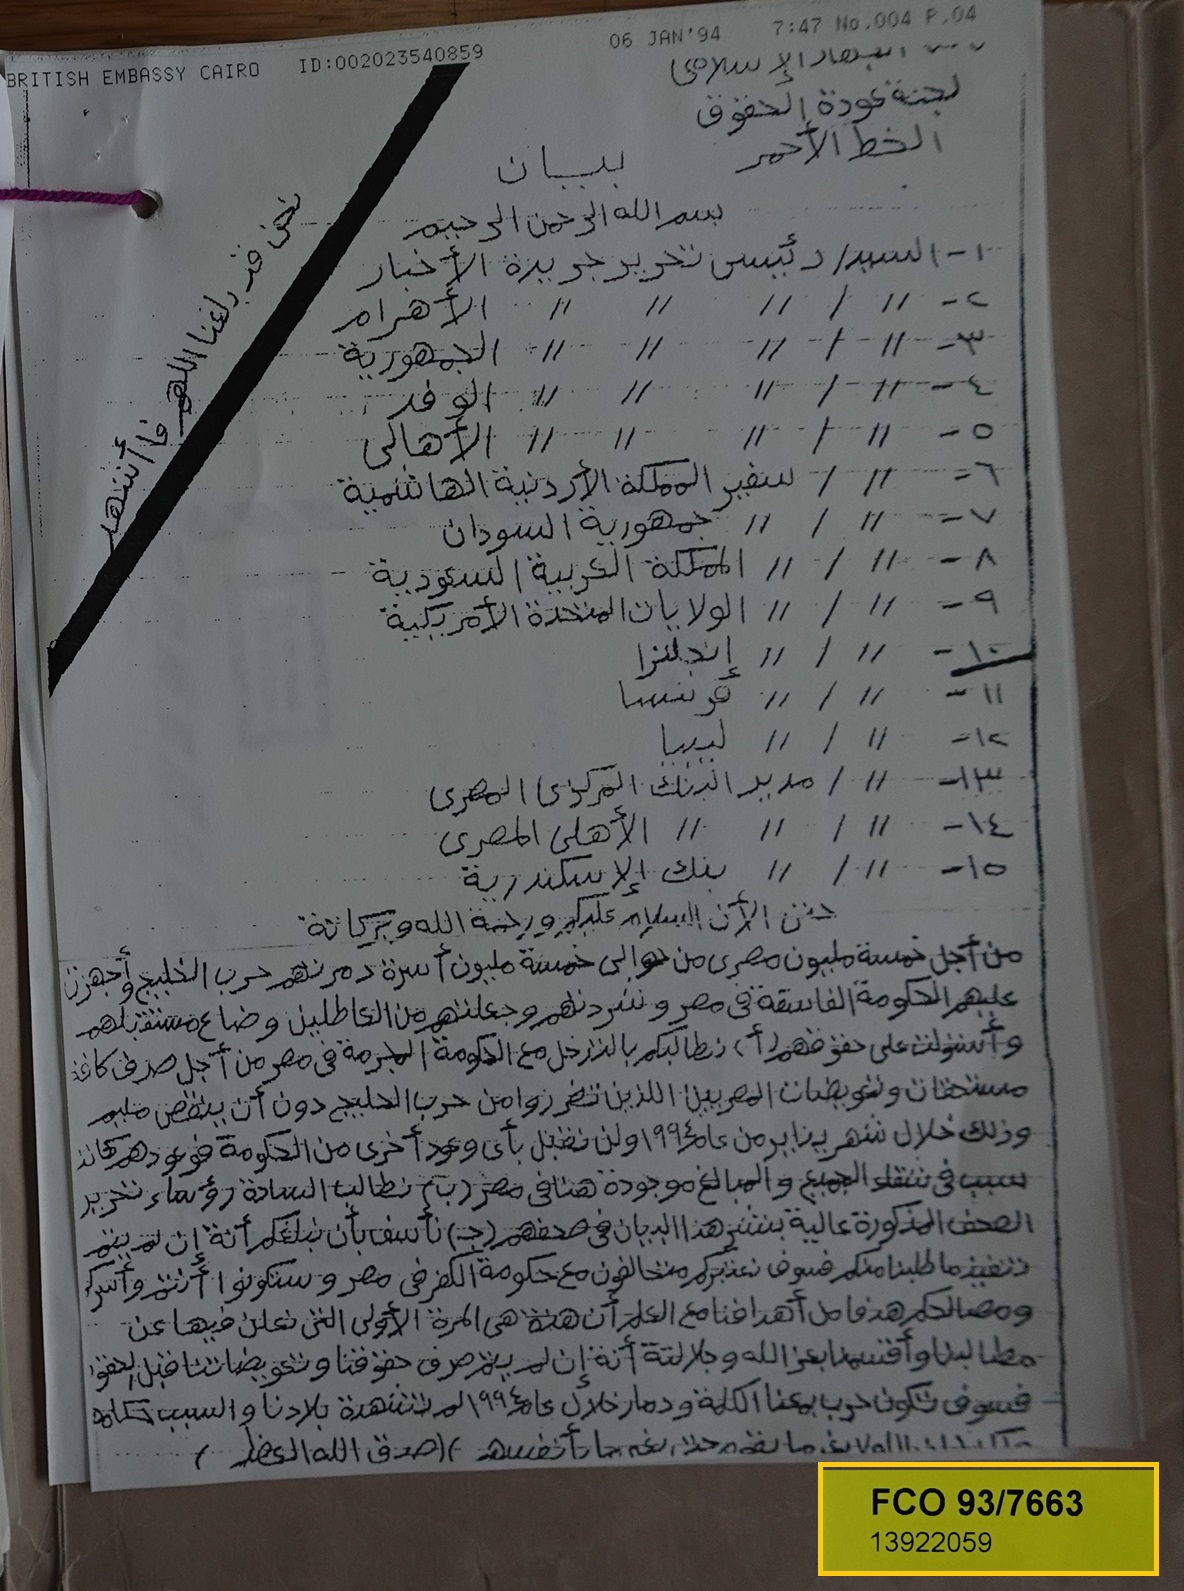 BRITISH EMBASSY CAIRO ID:002023540859 06 JAN'94 7:47 No.004 P.04
الجهاد الإسلامى
لجنة عودة الحقوق
الخط الأحمر
بيان
نحن قد بلغنا اللهم فأشهد
بسم الله الرحمن الرحيم
١- السيد/ رئيسى تحرير جريدة الأخبار
٢- // / // // // الأهرام
٣- // / // // // الجمهورية
٤- // / // // // الوفد
٥- // / // // // الأهالى
٦- // / سفير المملكة الأردنية الهاشمية
٧- // / // جمهورية السودان
٨- // / // المملكة العربية السعودية
٩- // / // الولايات المتحدة الأمريكية
١٠- // / // إنجلترا
١١- // / // فرنسا
١٢- // / // ليبيا
١٣- // / مدير البنك المركزى المصرى
١٤- // / // // الأهلى المصرى
١٥- // / // بنك الإسكندرية
حتى الأن السلام عليكم ورحمة الله وبركاتة
من أجل خمسة مليون مصرى من حوالى خمسة مليون أسرة دمرتهم حرب الخليج وأجهزت
عليهم الحكومة الفاسقة فى مصر وشردتهم وجعلتهم من العاطلين وضاع مستقبلهم
وأستولت على حقوقهم (أ) نطالبكم بالتدخل مع الحكومة المجرمة فى مصر من أجل صرف كافة
مستحقات وتعويضات المصريين اللذين تضرروا من حرب الخليج دون أن ينقص مليم
وذلك خلال شهر يناير من عام ١٩٩٤ ولن نقبل بأى وعود أخرى من الحكومة فوعودهم كانت
سبب فى شقاء الجميع والمبالغ موجودة هنا فى مصر (ب) نطالب السادة رؤساء تحرير
الصحف المذكورة عالية بنشر هذا البيان فى صحفهم (ج) نأسف بأن نبلغكم أنة إن لم يتم
تنفيذ ما طلبنا منكم فسوف نعتبركم متحالفون مع حكومة الكفر فى مصر وستكونوا أنتم وأسركم
ومصالحكم هدفا من أهدافنا مع العلم أن هذة هى المرة الأولى التى نعلن فيها عن
مطالبنا وأقسمنا بعز الله وجلالتة أنة إن لم يتم صرف حقوقنا وتعويضاتنا
فسوف تكون حرب بمعنا الكلمة ودمار خلال عام ١٩٩٤ لم تشهدة بلادنا والسبب حكامة
الله لا يغير ما بقوم حتى يغيروا ما بأنفسهم ) (صدق الله العظيم )
FCO 93/7663
13922059